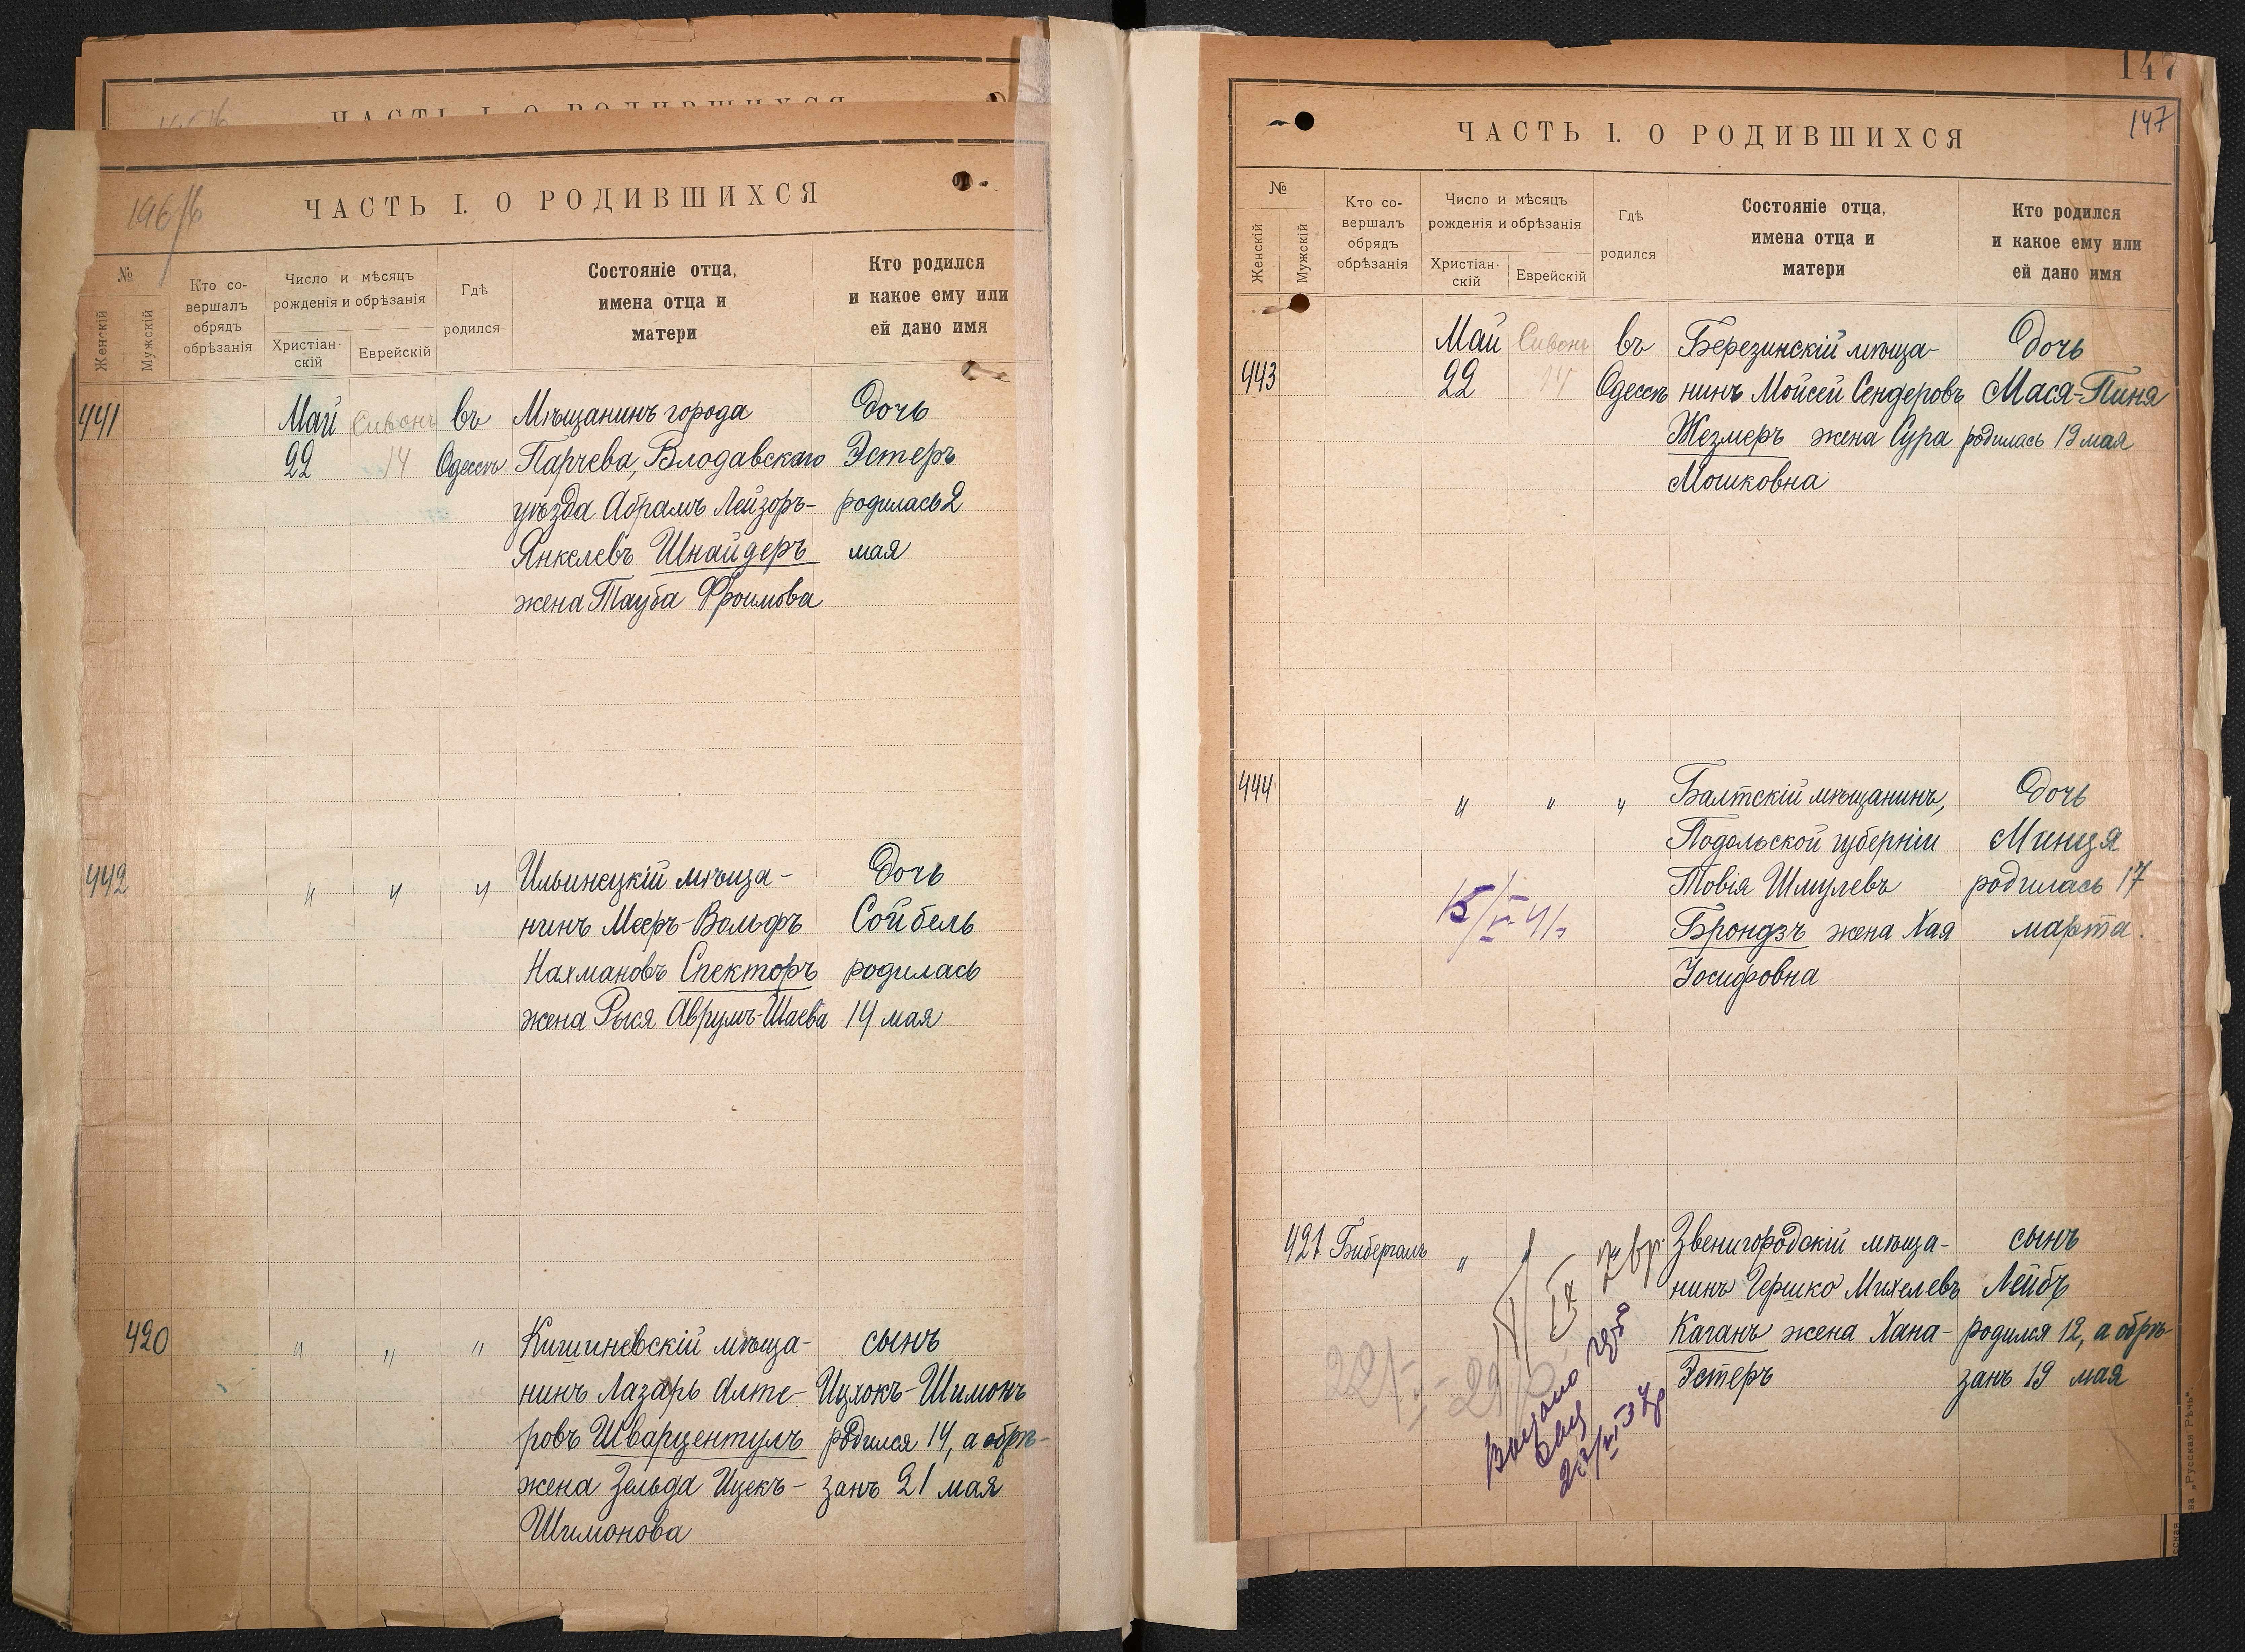 ЧАСТЬ I. О РОДИВШИХСЯ
ЧАСТЬ I. О РОДИВШИХСЯ
№
Женскій
Мужскій
Кто со-
вершалъ
обрядъ
обрѣзанія
Число и мѣсяцъ
рожденія и обрѣзанія
Христіан-
скій
Еврейскій
Гдѣ
родился
Состояніе отца,
имена отца и
матери
Кто родился
и какое ему или
ей дано имя
441
Май Сивонъ въ Мѣщанинъ города Дочь
22 14 Одессѣ Парчева, Влодавскаго Эстеръ
уѣзда Абрамъ Лейзоръ- родилась 2
Янкелевъ Шнайдеръ мая
жена Тауба Фроимова
442 " " " Ильинецкій мѣща- Дочь
нинъ Меєръ-Вольфъ Сойбель
Нахмановъ Спекторъ родилась
жена Рыся Аврумъ-Шаева 14 мая
420 " " " Кишиневскій мѣща- сынъ
нинъ Лазарь Алте- Ицхокъ-Шимонъ
ровъ Шварцентулъ родился 14, а обрѣ-
жена Зельда Ицекъ- занъ 21 мая
Шимонова
147
147
ЧАСТЬ I. О РОДИВШИХСЯ
№
Женскій
Мужскій
Кто со-
вершалъ
обрядъ
обрѣзанія
Число и мѣсяцъ
рожденія и обрѣзанія
Христіан-
скій
Еврейскій
Гдѣ
родился
Состояніе отца,
имена отца и
матери
Кто родился
и какое ему или
ей дано имя
Май Сивонъ въ Березинскій мѣща- Дочь
443 22 14 Одессѣ нинъ Мойсей Сендеровъ Мася-Пиня
Жезмеръ жена Сура родилась 19 мая
Мошковна
444 " " " Балтскій мѣщанинъ, Дочь
Подольской губерніи Минця
Товія Шмулевъ родилась 17
Брондзъ жена Хая марта.
Іосифовна
421 Бибергалъ " " " Звенигородскій мѣща- сынъ
нинъ Гершко Михелевъ Лейбъ
Каганъ жена Хана- родился 12, а обрѣ-
Эстеръ занъ 19 мая
"Русская Рѣчь".